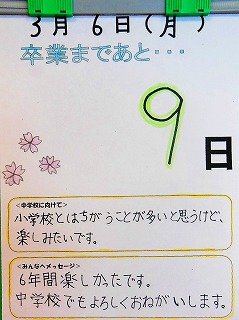 3月6日(月)
卒業まであと・・・
9
日
<中学校に向けて>
小学校とはちがうことが多いと思うけど、
楽しみたいです。
<みんなへメッセージ>
6年間楽しかったです。
中学校でもよろしくおねがいします。